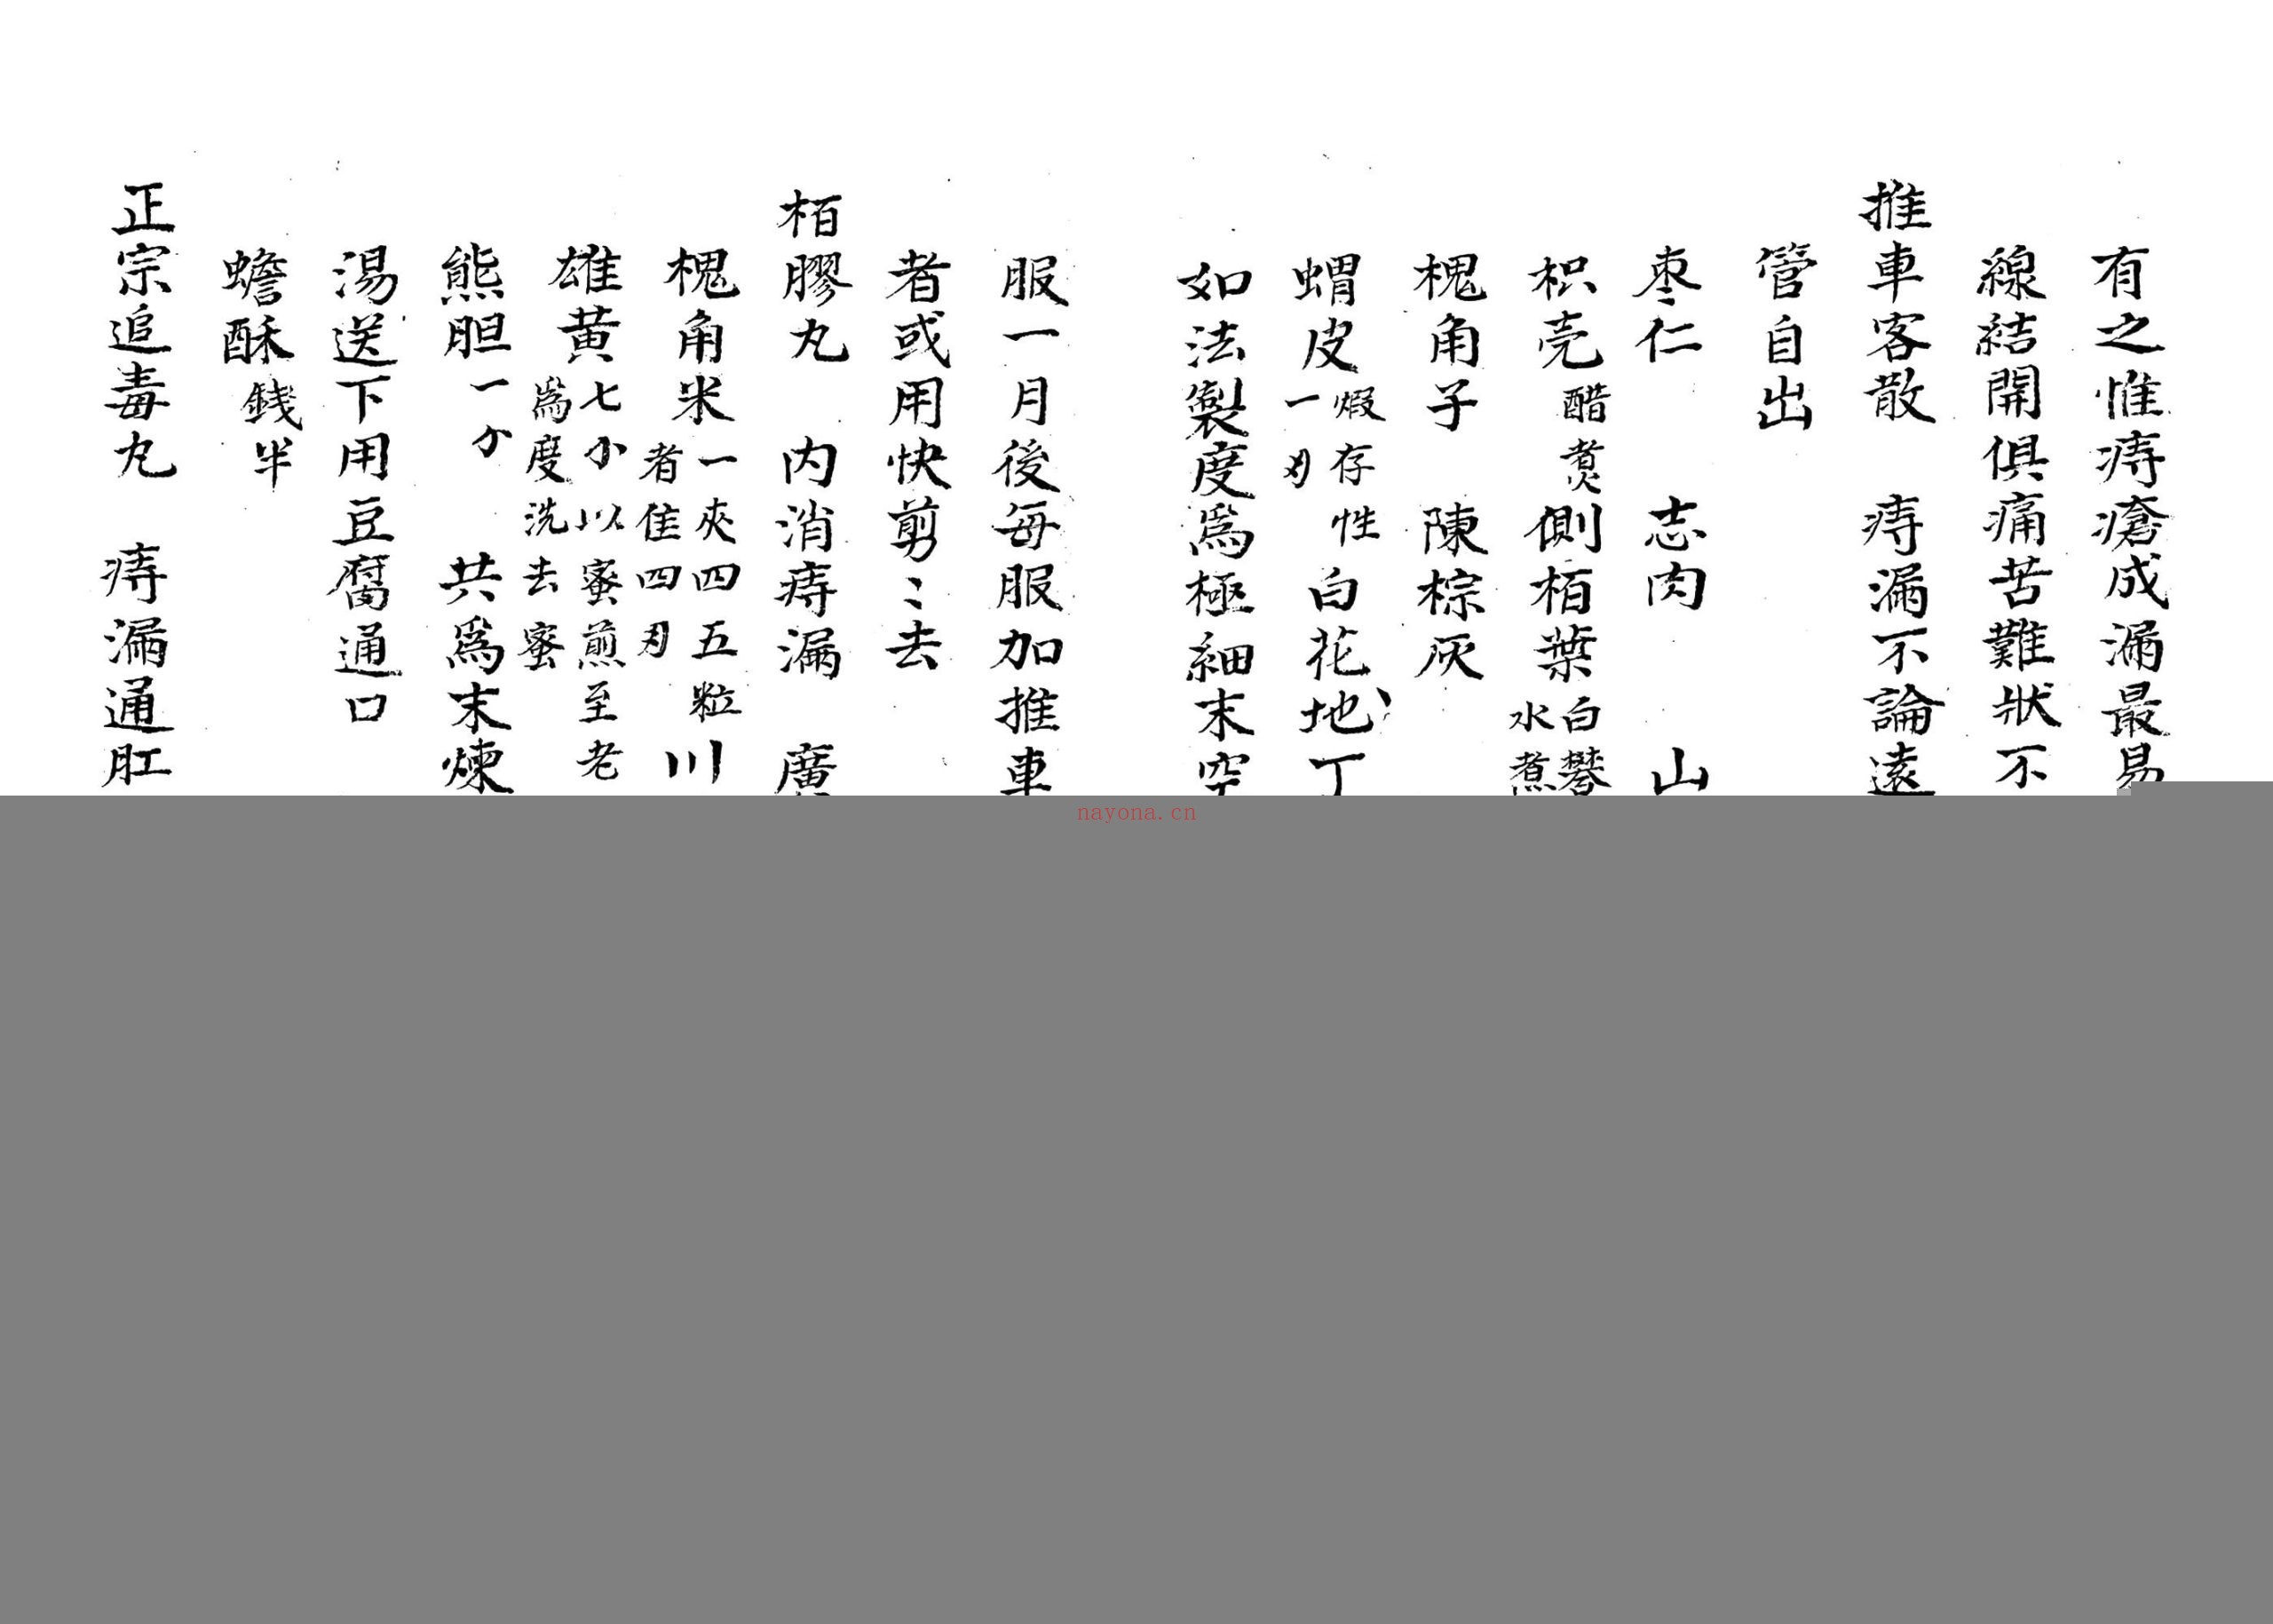 有之惟痔瘡成漏最易
線結開俱痛苦難狀不
推車客散　痔漏不論遠
管自出
枣仁　志肉　山
枳壳醋煑側栢葉白礬水煮
槐角子　陳棕灰
蝟皮煅存性一刄白花地丁
如法製度爲極細末空
服一月後每服加推車
者或用快剪〻去
栢膠丸　内消痔漏　廣
槐角米一夾四五粒者隹四刄川
雄黄七分以蜜煎至老爲度洗去蜜
熊胆一个　共爲末煉
湯送下用豆腐通口
蟾酥錢半
正宗追毒丸　痔漏通肛
nayona.cn